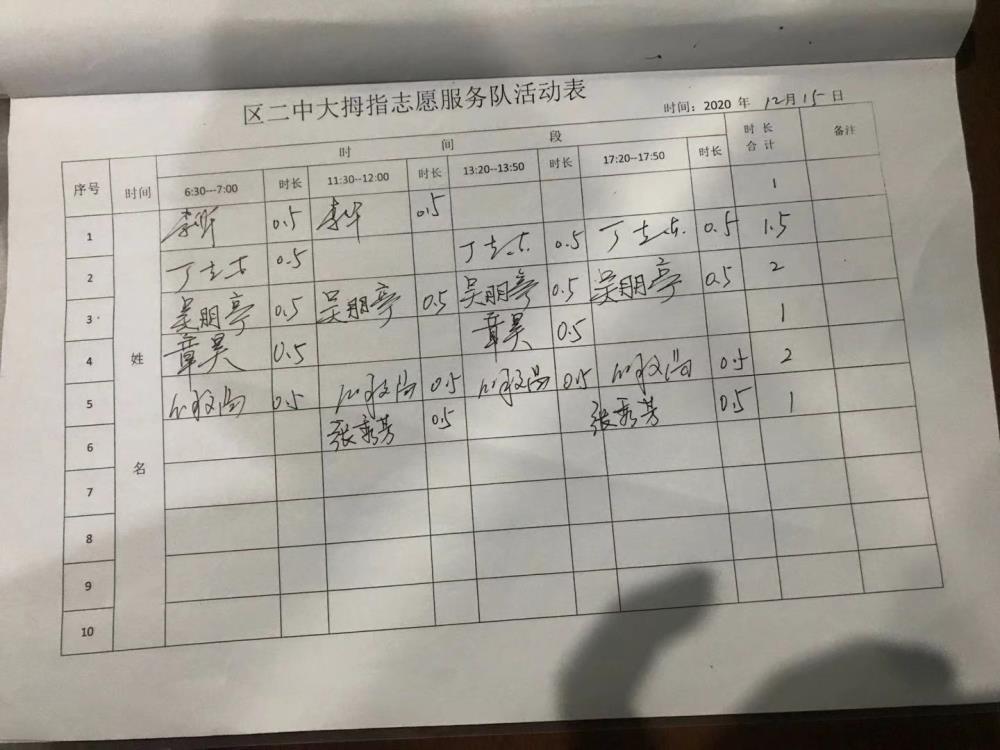 区二中大拇指志愿服务队活动表
时间：2020 年 12月 15 日
序号 时间 时 间 段 时 长 合 计 备注
6:30---7:00 时长 11:30--12:00 时长 13:20--13:50 时长 17:20--17:50 时长
姓 名
1 0.5 0.5 1
2 丁志杰 0.5 丁志杰 0.5 丁志杰 0.5 1.5
3 吴朋亭 0.5 吴朋亭 0.5 吴朋亭 0.5 吴朋亭 0.5 2
4 章昊 0.5 章昊 0.5 1
5 0.5 0.5 0.5 0.5 2
6 张秀芳 0.5 张秀芳 0.5 1
7
8
9
10